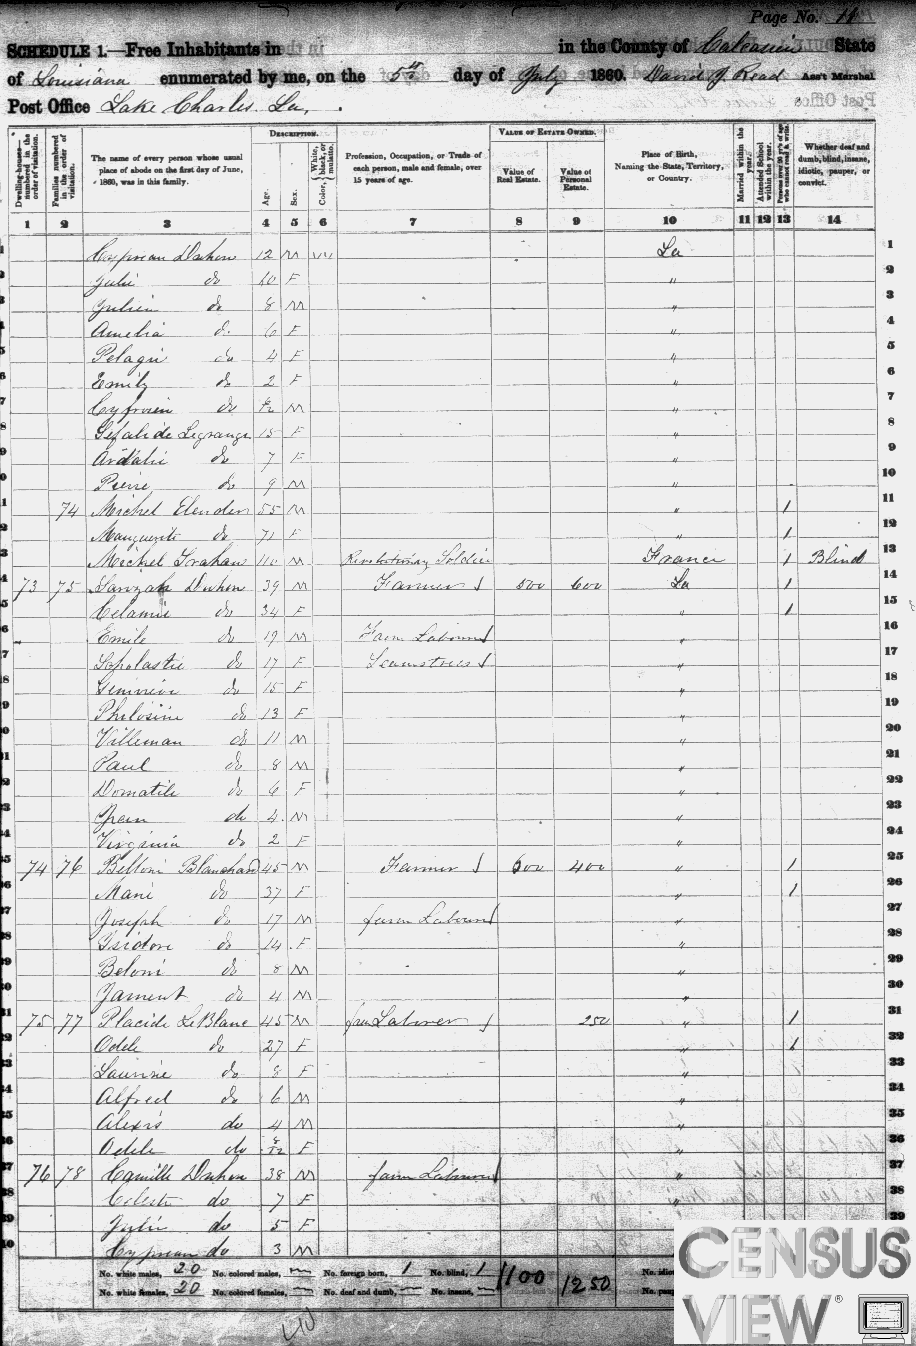 Page No. 11
SCHEDULE 1.—Free Inhabitants in in the County of Calcasieu State
of Louisiana enumerated by me, on the 5th day of July 1860. David J. Read Ass't Marshal
Post Office Lake Charles La.
Dwelling-houses—numbered in the order of visitation.
Families numbered in the order of visitation.
The name of every person whose usual place of abode on the first day of June, 1860, was in this family.
DESCRIPTION.
Age.
Sex.
Color, White, black, or mulatto.
Profession, Occupation, or Trade of each person, male and female, over 15 years of age.
VALUE OF ESTATE OWNED.
Value of Real Estate.
Value of Personal Estate.
Place of Birth, Naming the State, Territory, or Country.
Married within the year.
Attended School within the year.
Persons over 20 y'rs of age who cannot read & write.
Whether deaf and dumb, blind, insane, idiotic, pauper, or convict.
1 2 3 4 5 6 7 8 9 10 11 12 13 14
1 Cyprean Duhon 12 M La 1
2 Julie do 10 F " 2
3 Julien do 8 M " 3
4 Amelia do 6 F " 4
5 Pelagie do 4 F " 5
6 Emily do 2 F " 6
7 do M " 7
8 Legrange 15 F " 8
9 do 7 F " 9
10 Pierre do 9 M " 10
11 74 Michel 55 M " 1 11
12 Marguerite do 71 F " 1 12
13 Michel Trahan 110 M Revolutionary Soldier France 1 Blind 13
14 73 75 Duhon 39 M Farmer 500 600 La 1 14
15 do 34 F " 1 15
16 Emile do 19 M Farm Labourer " 16
17 Scholastie do 17 F Seamstress " 17
18 Genivieve do 15 F " 18
19 Philosine do 13 F " 19
20 Villeman do 11 M " 20
21 Paul do 8 M " 21
22 Domatile do 6 F " 22
23 Jean do 4 M " 23
24 Virginia do 2 F " 24
25 74 76 Belloni Blanchard 45 M Farmer 600 400 " 1 25
26 Marie do 37 F " 1 26
27 Joseph do 17 M farm Labourer " 27
28 Isidore do 14 F " 28
29 Beloni do 8 M " 29
30 do 4 M " 30
31 75 77 Placide LeBlanc 45 M Laborer 250 " 1 31
32 Odele do 27 F " 1 32
33 Laurine do 8 F " 33
34 Alfred do 6 M " 34
35 Alexis do 4 M " 35
36 Odele do 8/12 F " 36
37 76 78 Camille Duhon 38 M farm Labourer " 37
38 Celeste do 7 F " 38
39 Julie do 5 F 39
40 Cyprean do 3 M
No. white males, 20 No. colored males, — No. foreign born, 1 No. blind, 1 1100 1250 No. idio
No. white females, 20 No. colored females, — No. deaf and dumb, — No. insane, — No. pau
CENSUS
VIEW®